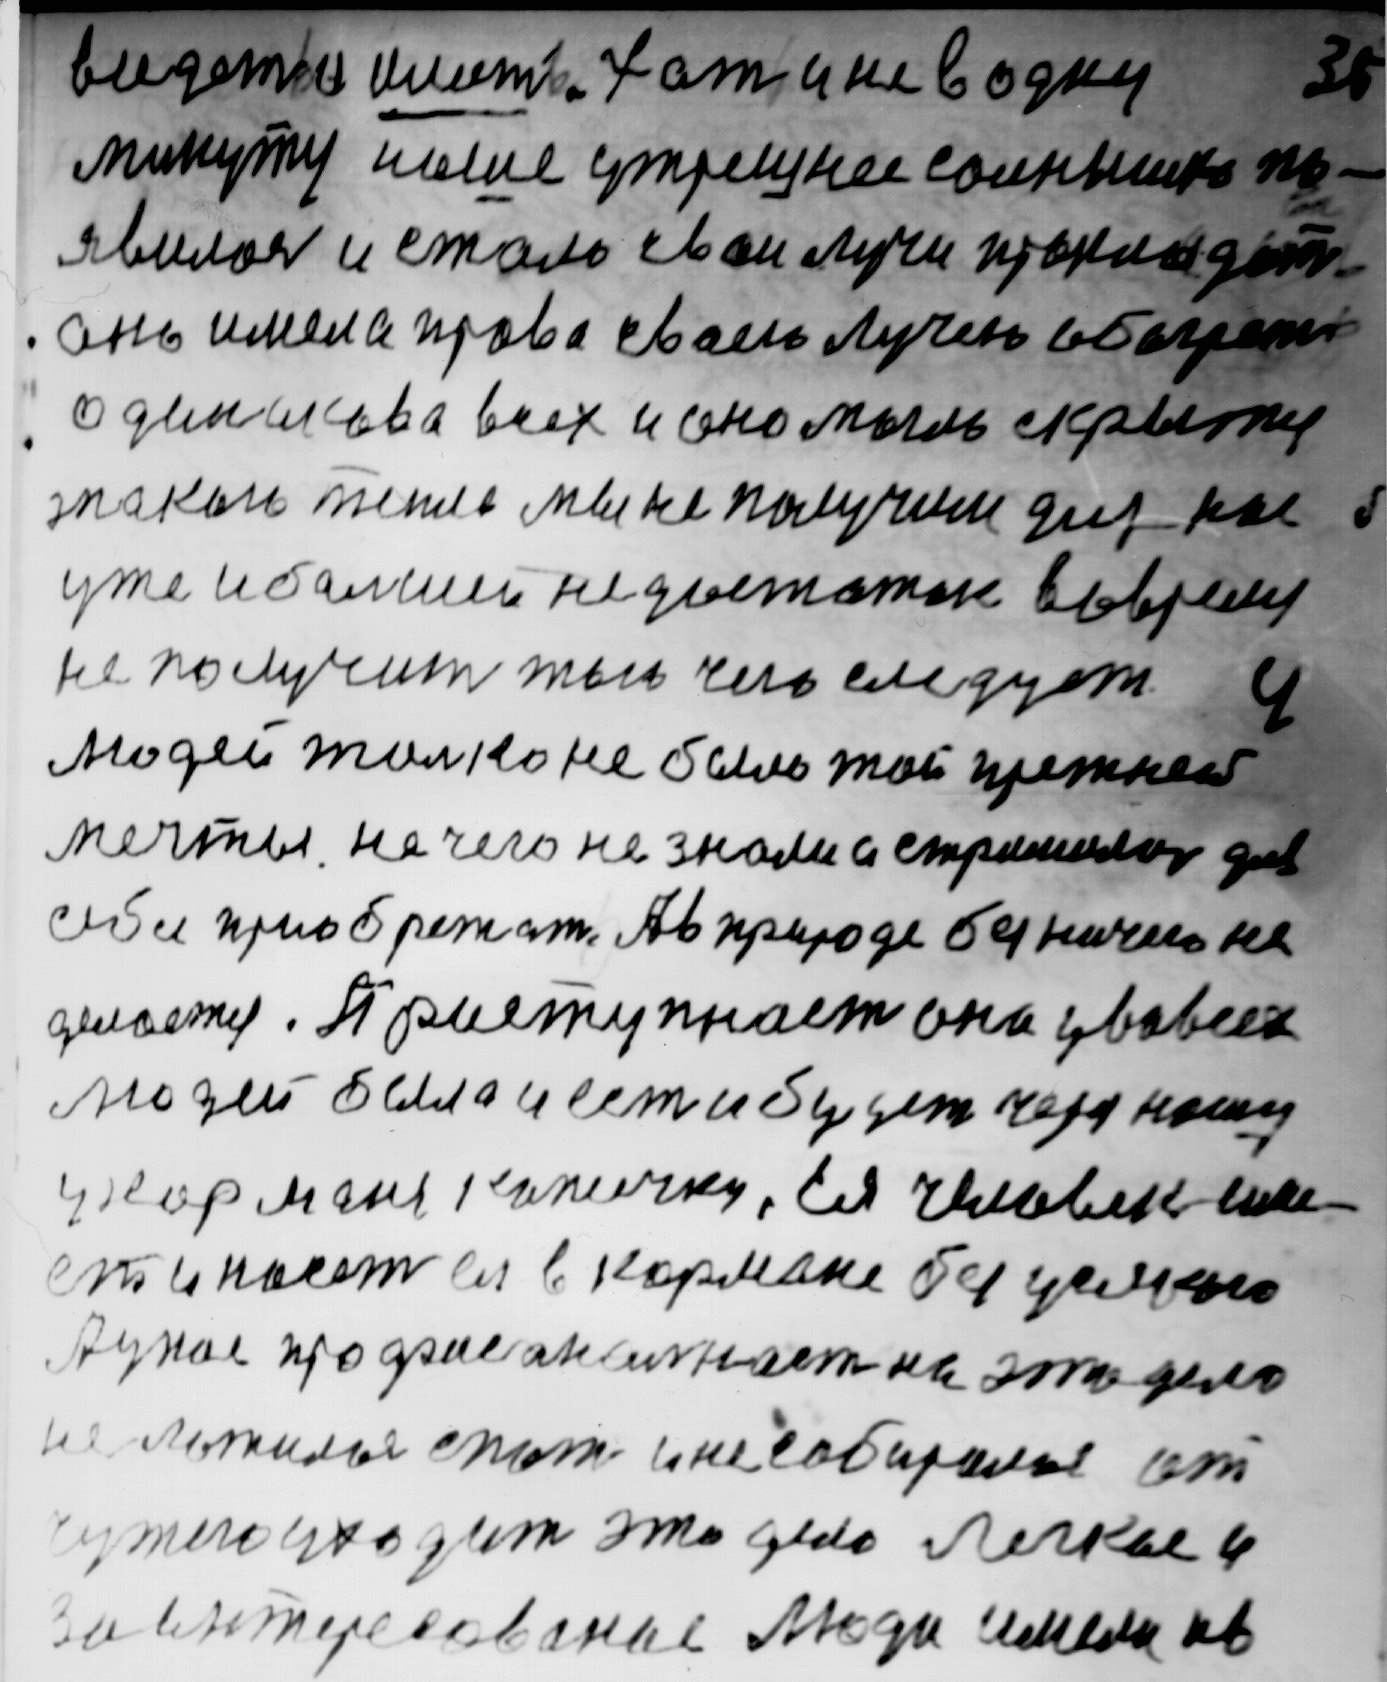 видать и иметь. Хоть и не в одну 35
минуту наше утрешнее солнышко по-
явилось и стало свои лучи прокладать.
оно имела права своею лучею обогреть
одинакова всех и оно мыгло скрытця
такого тепла мы не получили для нас
уже и балшей недостаток вовремя
не получит того чего следует. У
людей толко не было той прежней
мечты. не чего не знали а стремилсь для
себя приобретат. А в природе без ничего не
делоетця. Приступнает она у во всех
людей была и ест и будет через нашу
у кармане копеечку, Ея человек име-
ет и носет ея в кармане без усякого
А у нас професианалнает на это дело
не ложилься спать и не собиралься от
чужего уходит это дело легкае и
заинтересованае Люди имели ив